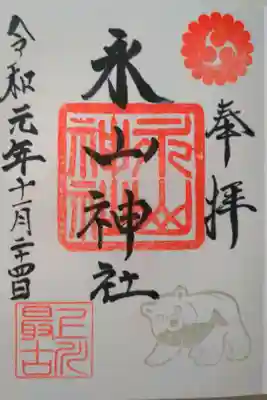 奉拝
永山神社
永山神社
令和元年十一月二十四日
上川
最古